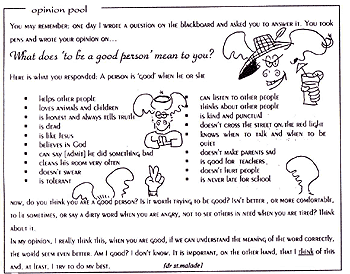 opinion pool
You may remember: one day I wrote a question on the blackboard and asked you to answer it. You took
pens and wrote your opinion on...
What does 'to be a good person' mean to you?
Here is what you responded: A person is 'good' when he or she
helps other people
loves animals and children
is honest and always tells truth
is dead
is like Jesus
believes in God
can say [admit] he did something bad
cleans his room very often
doesn't swear
is tolerant
can listen to other people
thinks about other people
is kind and punctual
doesn't cross the street on the red light
knows when to talk and when to be
quiet
doesn't make parents sad
is good for teachers,
doesn't hurt people
is never late for school
Now, do you think you are a good person? Is it worth trying to be good? Isn't better, or more comfortable,
to lie sometimes, or say a dirty word when you are angry, not to see others in need when you are tired? Think
about it.
In my opinion, I really think this, when you are good, if we can understand the meaning of the word correctly,
the world seem even better. Am I good? I don't know. It is important, on the other hand, that I think of this
and, at least, I try to do my best.
[dr st.malade]